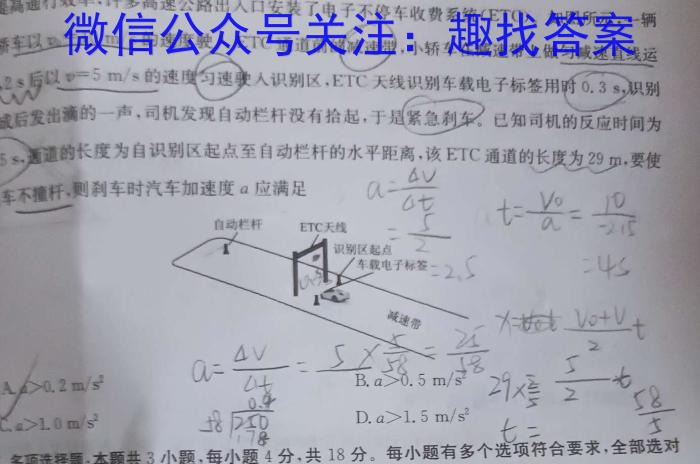 提高通行效率,许多高速公路出入口安装了电子不停车收费系统(ETC)
微信公众号关注：趣找答案
2 s后以v=5 m/s的速度匀速驶入识别区,ETC天线识别车载电子标签用时0.3 s,识别
成后发出滴的一声,司机发现自动栏杆没有抬起,于是紧急刹车。已知司机的反应时间为
5 s,通道的长度为自识别区起点至自动栏杆的水平距离,该ETC通道的长度为29 m,要使
车不撞杆,则刹车时汽车加速度a应满足
a=ΔV/Δt
=5/2
=2.5
t=V₀/a=10/-2.5
=4s
自动栏杆
ETC天线
识别区起点
车载电子标签
减速带
x= V₀+V/2 t
a=ΔV/Δt= 5×5/58=25/58
A.a>0.2 m/s²
B.a>0.5 m/s²
C.a>1.0 m/s²
D.a>1.5 m/s²
5/2 t
58/5
t=
多项选择题,本题共3小题,每小题4分,共18分。每小题有多个选项符合要求,全部选对